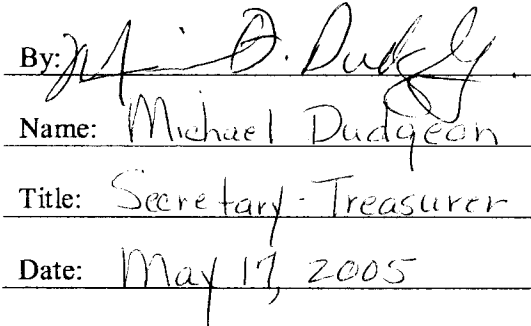 By: M D. Dudg
Name: Michael Dudgeon
Title: Secretary-Treasurer
Date: May 17, 2005